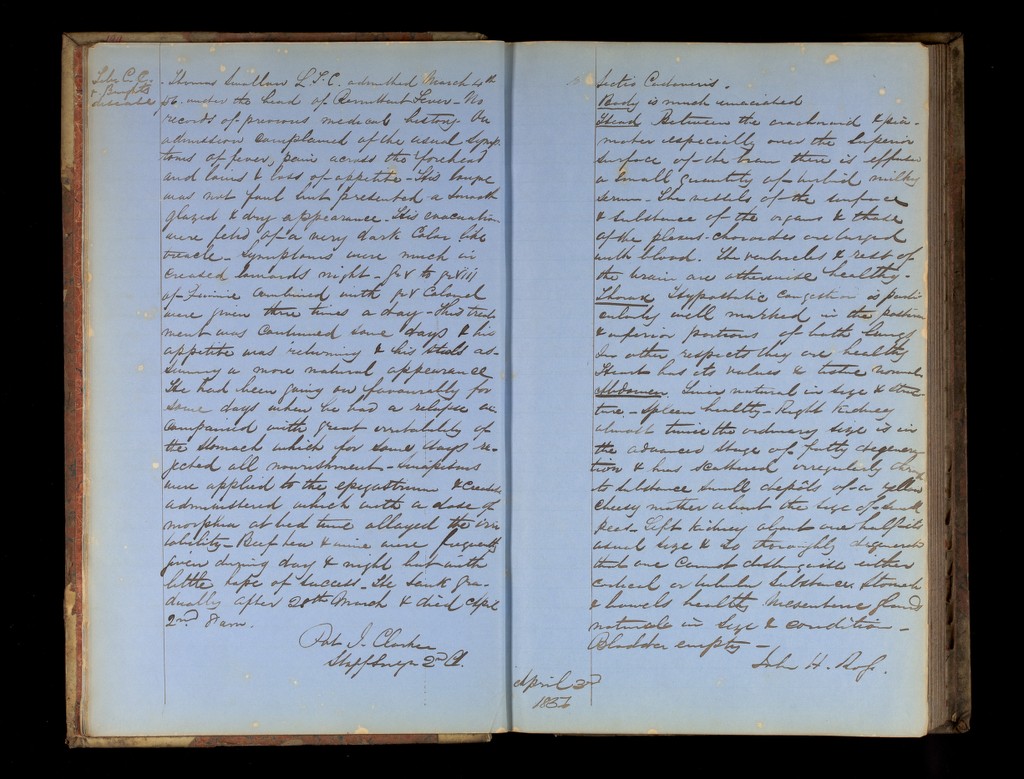 & Bright's
disease
Thomas Smallow L.T.C. admitted March 4th
56. under the head of Remittent Fever - No
records of previous medical history. On
admission complained of the usual symp-
toms of fever, pain across the forehead
and loins & loss of appetite - His tongue
was not foul but presented a smooth
glazed & dry appearance. His evacuations
were fetid of a very dark color like
treacle. Symptoms were much in
creased towards night - grv to grviij
of Quinine combined with grv Calomel
were given three times a day - this treat
ment was continued some days & his
appetite was returning & his stools as-
suming a more natural appearance
He had been going on favourably for
some days when he had a relapse ac
companied with great irritability of
the stomach which for some days re-
jected all nourishment - sinapisms
were applied to the epigastrium & creosote
administered which with a dose of
morphia at bed time allayed the irri
tability - Beef tea & wine were frequently
given during day & night but with
little hope of success. He sank gra-
dually after 28th March & died April
2nd 8 am.
J. Clarke
Staff Surgn 2nd Cl.
Sectio Cadaveris.
Body is much emaciated
Head Between the arachnoid & pia-
mater especially over the superior
surface of the brain there is effused
a small quantity of turbid milky
serum - The vessels of the surface
& substance of the organs & those
of the plexus-choroides are turgid
with blood. The ventricles & rest of
the brain are otherwise healthy -
Thorax Hypostatic congestion is parti
cularly well marked in the posterior
& inferior portions of both lungs
In other respects they are healthy
Heart has its valves & normal
Abdomen Liver natural in size & struc
ture - Spleen healthy - Right Kidney
almost twice the ordinary size is in
the advanced stage of fatty degenera
tion & has scattered irregularly thro
its substance small deposits of a yellow
cheesy matter about the size of small
peas - Left Kidney about one half its
usual size & so thoroughly degenerated
that one cannot distinguish either
cortical or tubular substance. Stomach
& bowels healthy Mesenteric glands
natural in size & condition -
Bladder empty -
John H. Rolfe.
April 3rd
1856